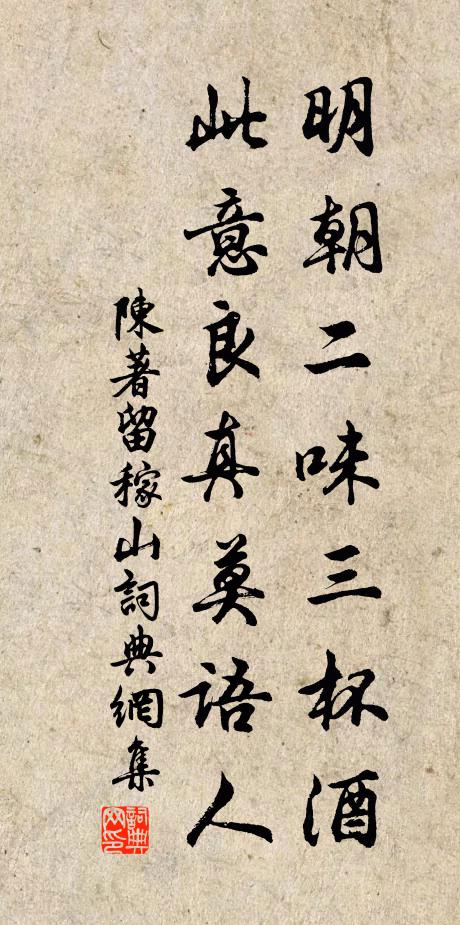 明朝二味三杯酒
此意良真莫語人
陳著留稼山詞典網集
詞典网印